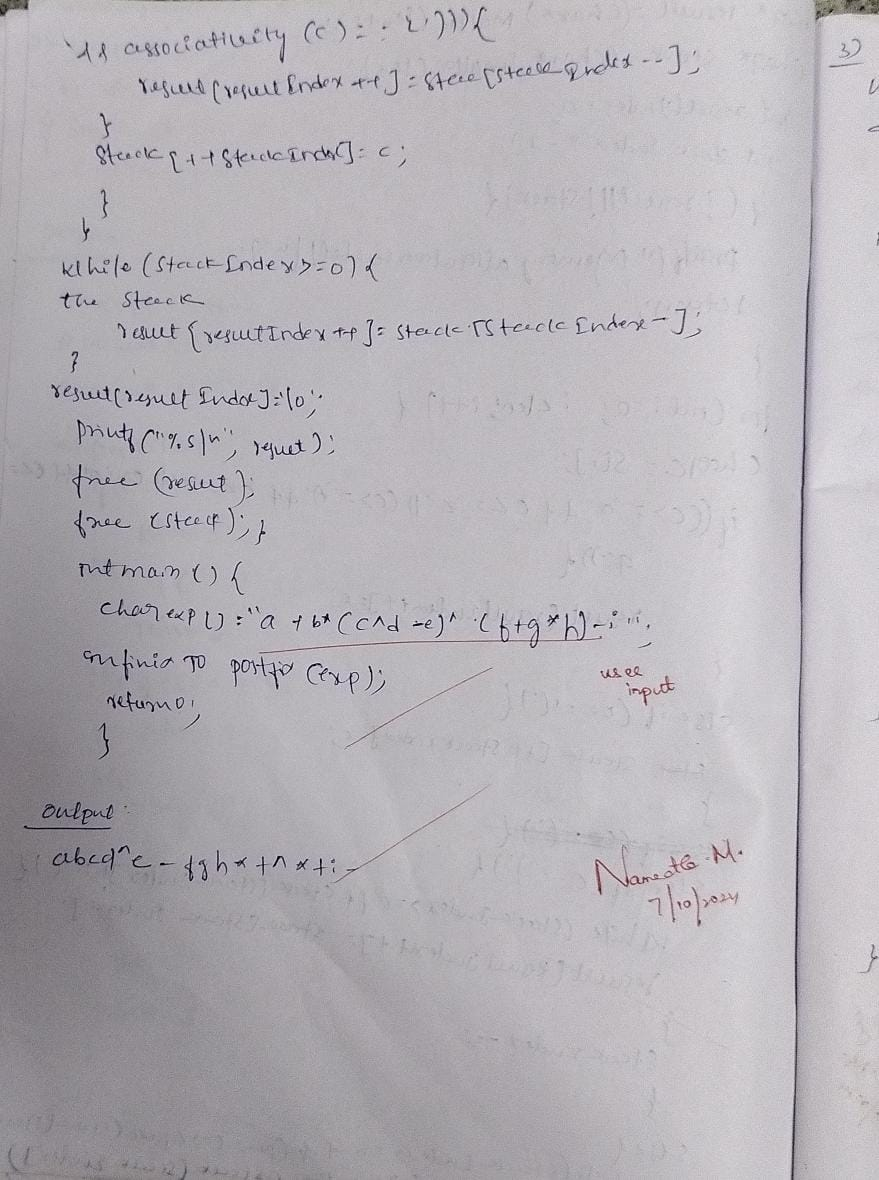 associativity (c) = = 'L'))) {
result [result Index ++] = stack [stack Index --];
}
Stack [++ Stack Index] = c;
}
}
While (Stack Index >= 0) {
the Stack
result [resultIndex ++] = stack [Stack Index -];
}
result [result Index] = '\0';
printf ("%s\n", result);
free (result);
free (stack); }
int main () {
char exp [] = "a + b* (c^d -e)^ (f+g*h)-i";
infinix TO postfix (exp);
return 0;
}
user
input
Output:
abcd^e-fgh*+^*+i-
Namratha.M.
7/10/2024
3)
}